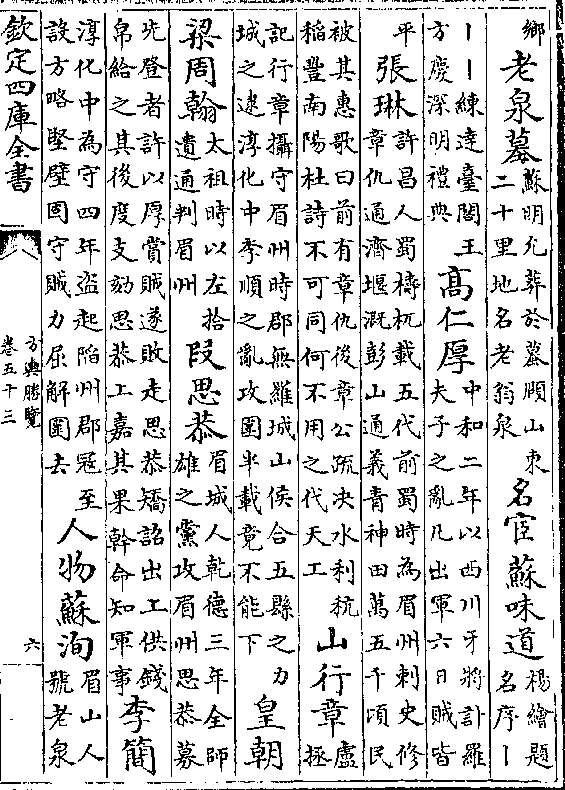 鄉老泉墓蘇明允葬於蟇頤山東二十里地名老翁泉名宦蘇味道楊繪題名序丨
丨丨練達臺閣王方慶深明禮典高仁厚中和二年以西川牙將討羅夫子之亂凡出軍六日賊皆
平張琳許昌人蜀檮杌載五代前蜀時為眉州刺史修章仇通濟堰溉彭山通義青神田萬五千頃民
被其惠歌曰前有章仇後章公疏决水利秔稻豐南陽杜詩不可同何不用之代天工山行章盧拯
記行章攝守眉州時郡無羅城山侯合五縣之力城之逮淳化中李順之亂攻圍半載竟不能下皇朝
梁周翰太祖時以左拾遺通判眉州段思恭眉城人乾德三年全師雄之黨攻眉州思恭募
先登者許以厚賞賊遂敗走思恭矯詔出上供錢帛給之其後度支劾思恭上嘉其果幹命知軍事李簡
淳化中為守四年盜起陷州郡冦至設方略堅壁固守賊力屈解圍去人物蘇洵眉山人號老泉
欽定四庫全書
方輿勝覽
卷五十三
六